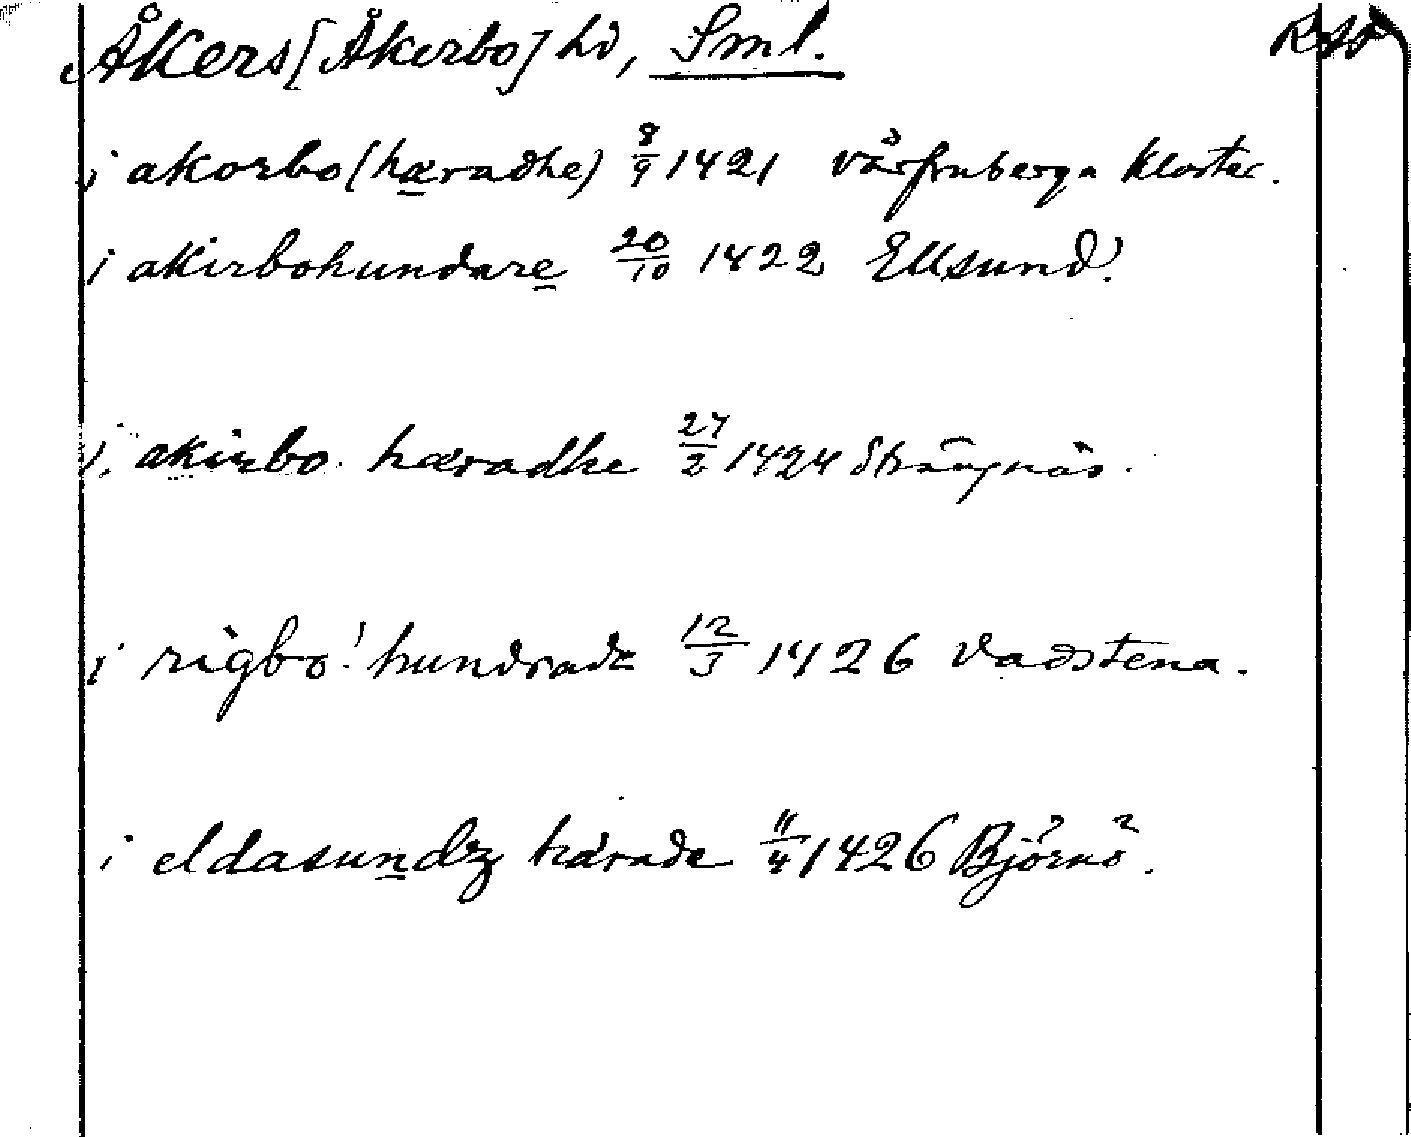 Åkers [Åkerbo] hd, Sml. RAp
i akorbo (hæradhe) 8/9 1421 Vårfruberga kloster.
i akirbohundare 20/10 1422 Ellsund.
i akirbo hæradhe 27/2 1424 Strängnäs.
i rigbo! hundrade 12/3 1426 Vadstena.
i eldasundz härade 11/4 1426 Björnö.